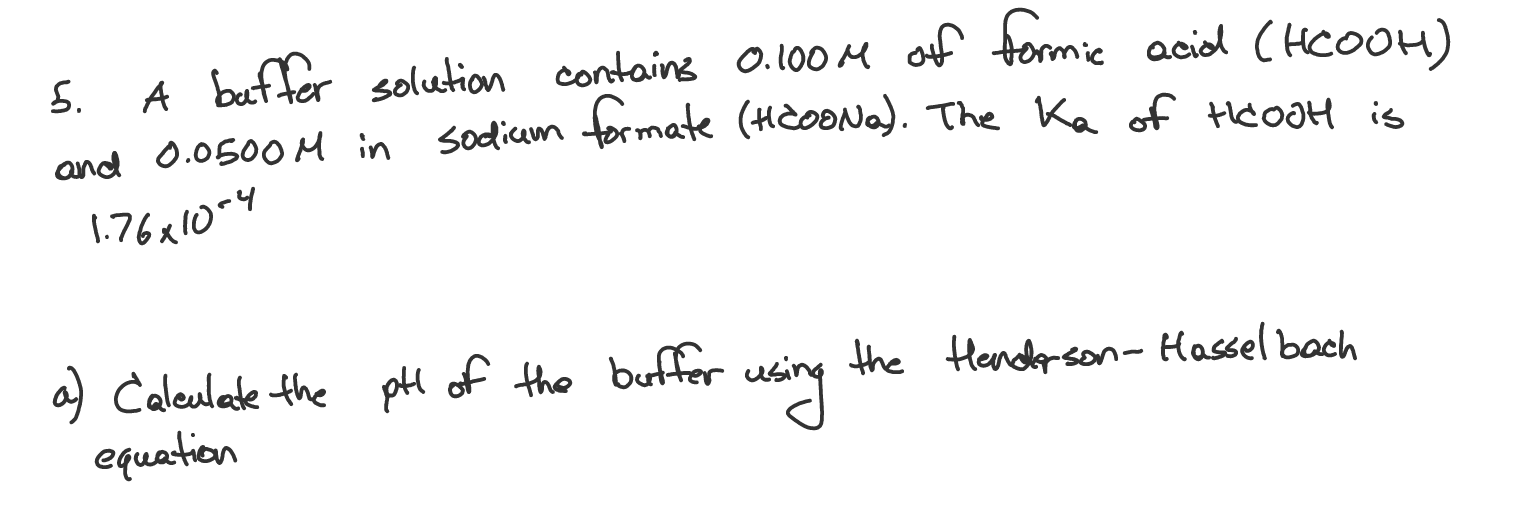 5. A buffer solution contains 0.100 M of formic acid (HCOOH)
and 0.0500 M in sodium formate (HCOONa). The Ka of HCOOH is
1.76x10⁻⁴
a) Calculate the pH of the buffer using the Henderson-Hasselbach
equation